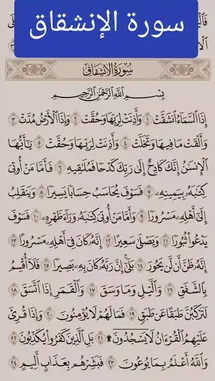 سورة الإنشقاق
سُورَةُ الانشِقَاقِ
بِسْمِ اللَّهِ الرَّحْمَٰنِ الرَّحِيمِ
إِذَا السَّمَاءُ انشَقَّتْ ١ وَأَذِنَتْ لِرَبِّهَا وَحُقَّتْ ٢ وَإِذَا الْأَرْضُ مُدَّتْ ٣
وَأَلْقَتْ مَا فِيهَا وَتَخَلَّتْ ٤ وَأَذِنَتْ لِرَبِّهَا وَحُقَّتْ ٥ يَا أَيُّهَا
الْإِنسَانُ إِنَّكَ كَادِحٌ إِلَىٰ رَبِّكَ كَدْحًا فَمُلَاقِيهِ ٦ فَأَمَّا مَنْ أُوتِيَ
كِتَابَهُ بِيَمِينِهِ ٧ فَسَوْفَ يُحَاسَبُ حِسَابًا يَسِيرًا ٨ وَيَنقَلِبُ
إِلَىٰ أَهْلِهِ مَسْرُورًا ٩ وَأَمَّا مَنْ أُوتِيَ كِتَابَهُ وَرَاءَ ظَهْرِهِ ١٠ فَسَوْفَ
يَدْعُو ثُبُورًا ١١ وَيَصْلَىٰ سَعِيرًا ١٢ إِنَّهُ كَانَ فِي أَهْلِهِ مَسْرُورًا ١٣
إِنَّهُ ظَنَّ أَن لَّن يَحُورَ ١٤ بَلَىٰ إِنَّ رَبَّهُ كَانَ بِهِ بَصِيرًا ١٥ فَلَا أُقْسِمُ
بِالشَّفَقِ ١٦ وَاللَّيْلِ وَمَا وَسَقَ ١٧ وَالْقَمَرِ إِذَا اتَّسَقَ ١٨
لَتَرْكَبُنَّ طَبَقًا عَن طَبَقٍ ١٩ فَمَا لَهُمْ لَا يُؤْمِنُونَ ٢٠ وَإِذَا قُرِئَ
عَلَيْهِمُ الْقُرْآنُ لَا يَسْجُدُونَ ۩ ٢١ بَلِ الَّذِينَ كَفَرُوا يُكَذِّبُونَ ٢٢
وَاللَّهُ أَعْلَمُ بِمَا يُوعُونَ ٢٣ فَبَشِّرْهُم بِعَذَابٍ أَلِيمٍ ٢٤